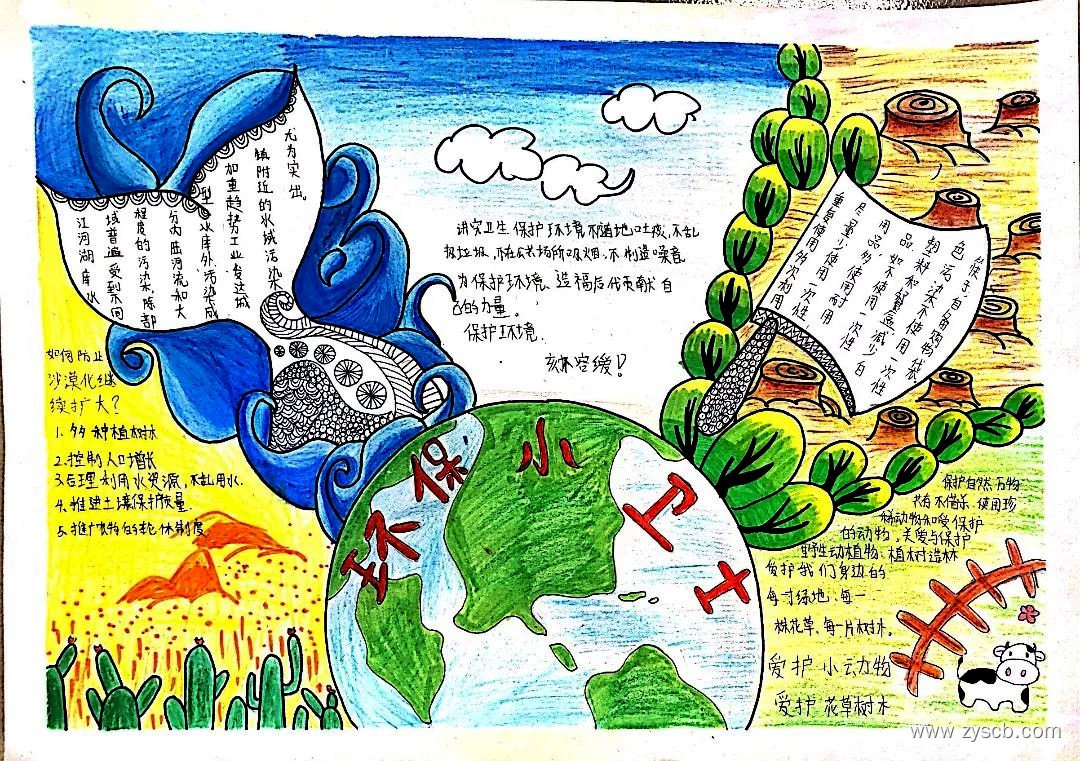 环保小卫士
江河湖库水
域普遍受到不同
程度的污染,除部
分内陆河流和大
型水库外,污染成
加重趋势,工业发达城
镇附近的水域污染
尤为突出。
讲究卫生,保护环境,不随地吐痰,不乱
扔垃圾,不在公共场所吸烟,不制造噪音
为保护环境,造福后代贡献自
己的力量。
保护环境
刻不容缓!
筷子,自备购物袋,
色污染不使用一次性
塑料和餐盒,减少白
用品,如不使用一次性
尽量少使用一次性
重复使用,多次利用
如何防止
沙漠化继
续扩大?
1. 多种植树木
2. 控制人口增长
3. 合理利用水资源,不乱用水.
4. 推建土壤保护质量.
5. 推广牧的轮休制度
保护自然,万物
使用珍
稀动物和受保护
的动物,关爱与保护
野生动植物,植树造林
爱护我们身边的
每寸绿地、每一
株花草、每一片树木。
爱护小动物
爱护花草树木
www.zyscb.com